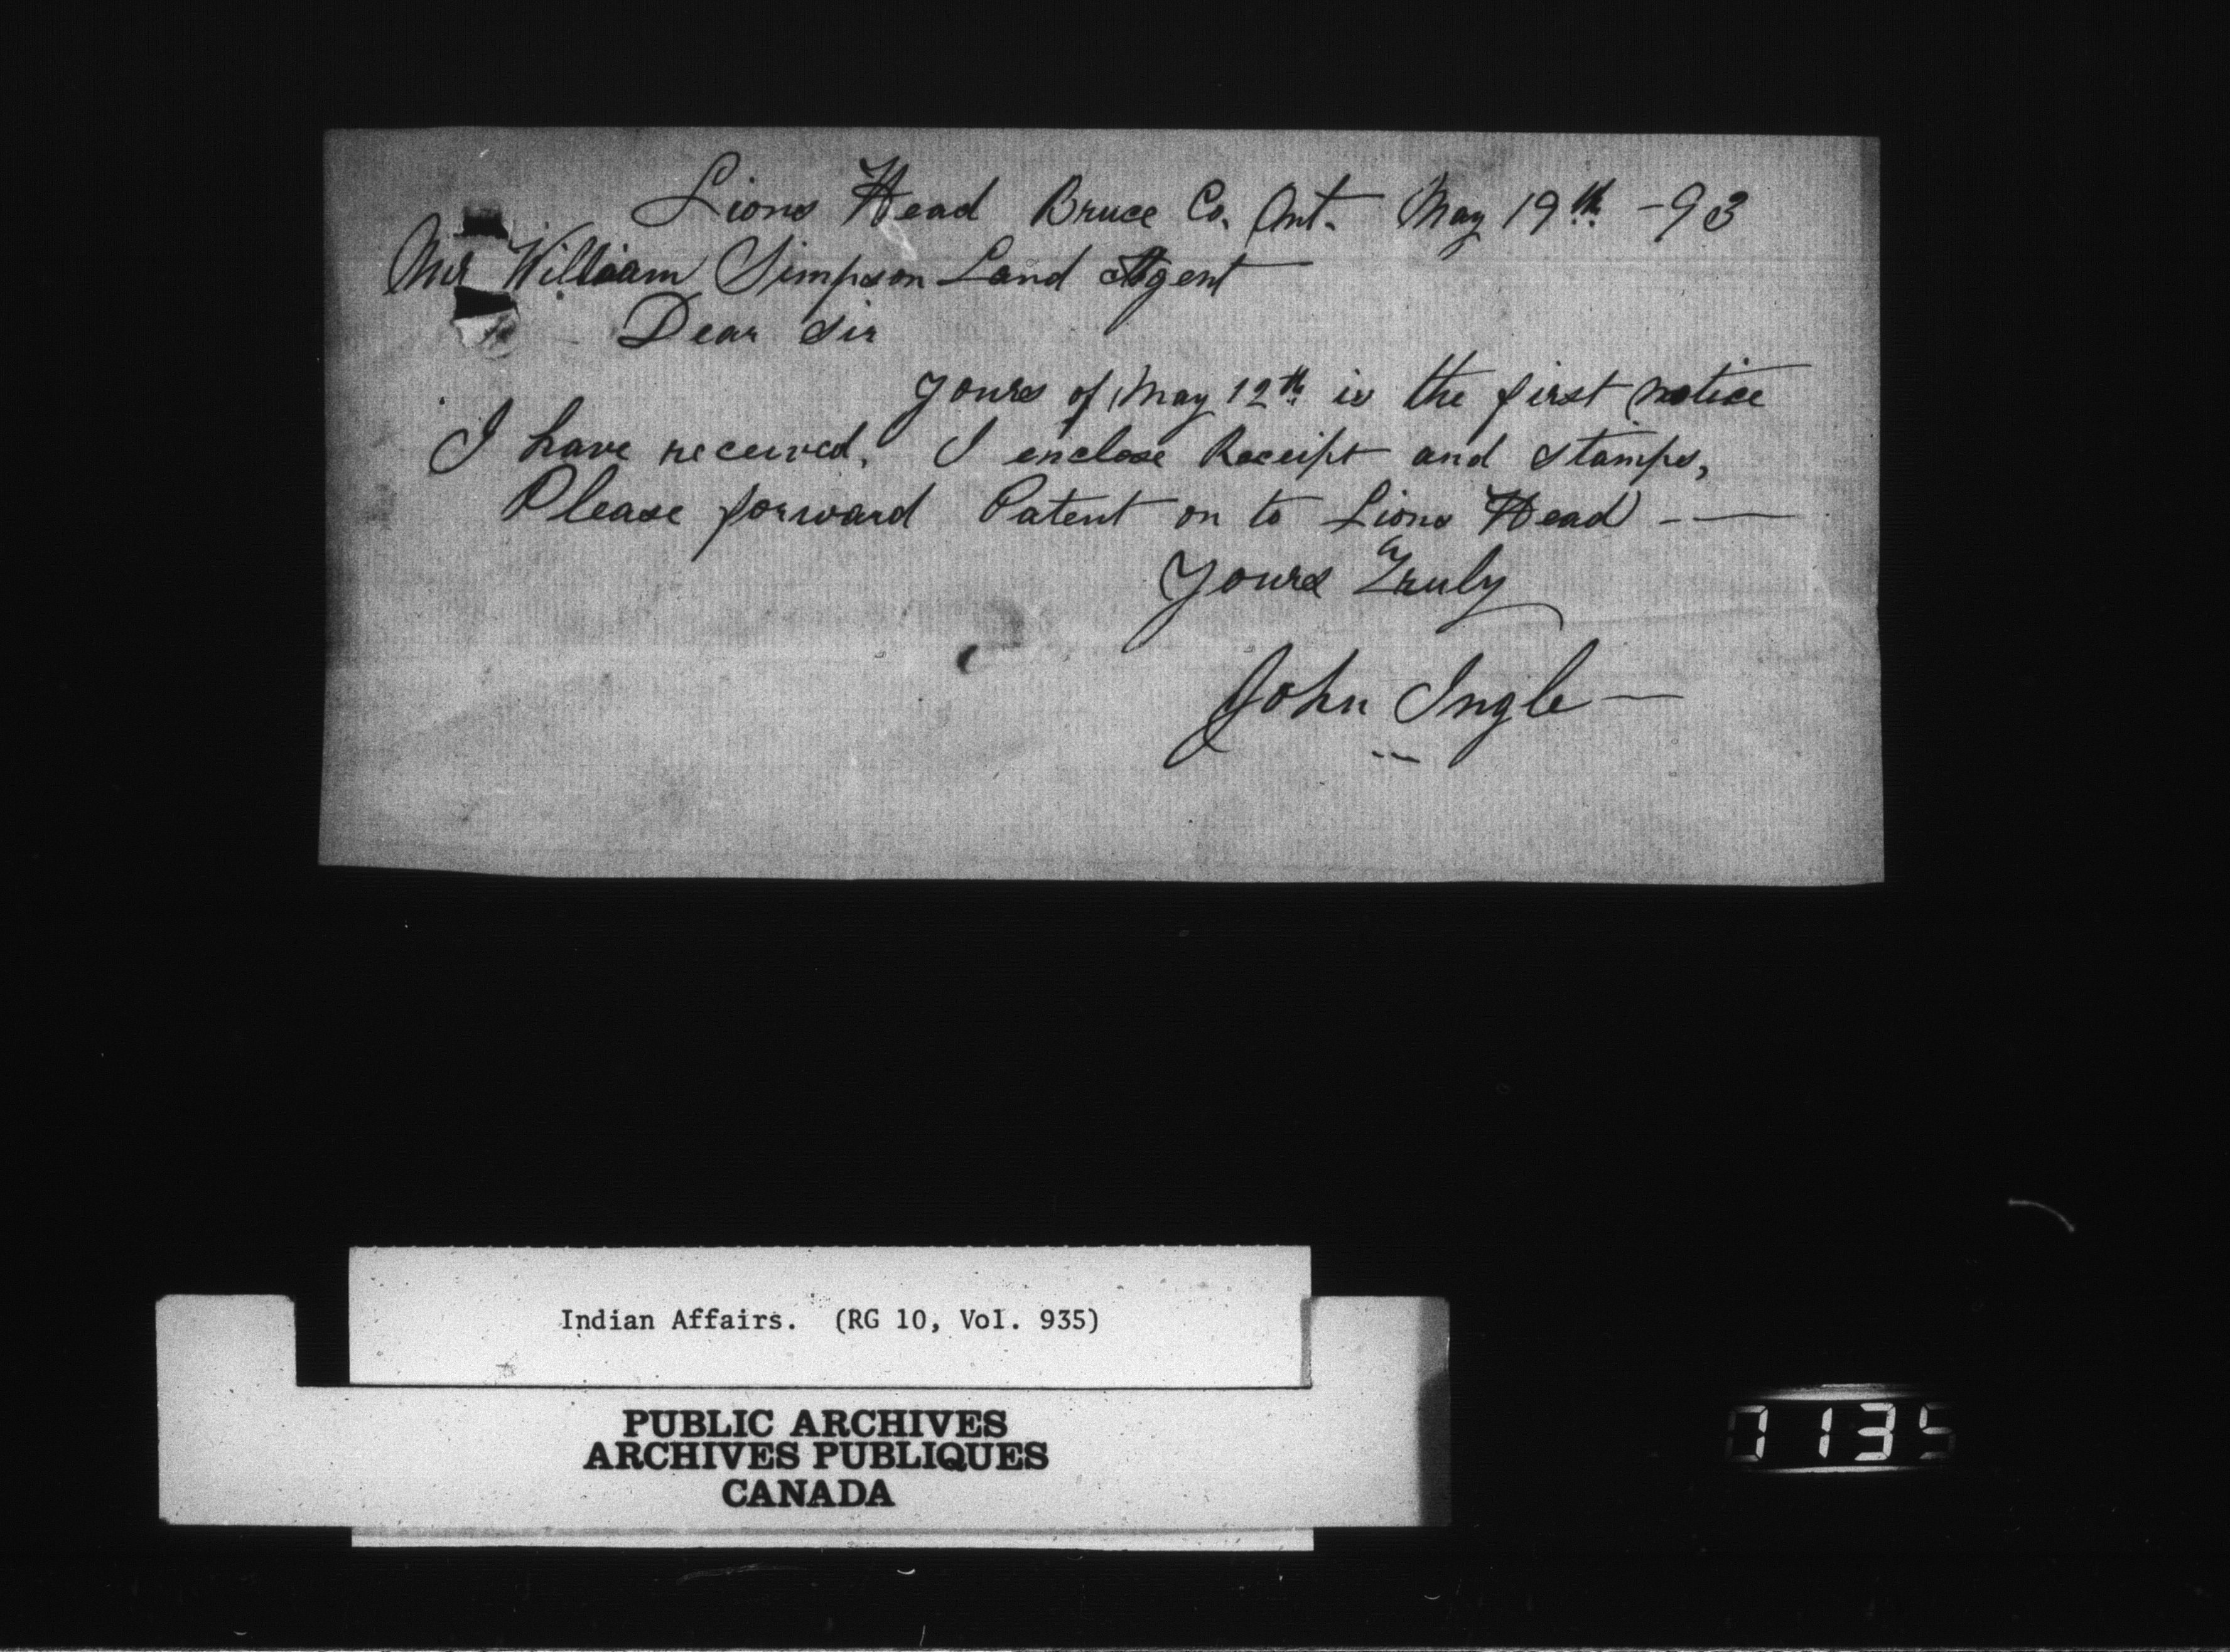 Lions Head Bruce Co. Ont. May 19th -93
Mr William Simpson Land Agent
Dear Sir
Yours of May 12th is the first notice
I have received. I enclose Receipt and stamps,
Please forward Patent on to Lions Head - —
Yours Truly
John Ingle —
Indian Affairs. (RG 10, Vol. 935)
PUBLIC ARCHIVES
ARCHIVES PUBLIQUES
CANADA
7135